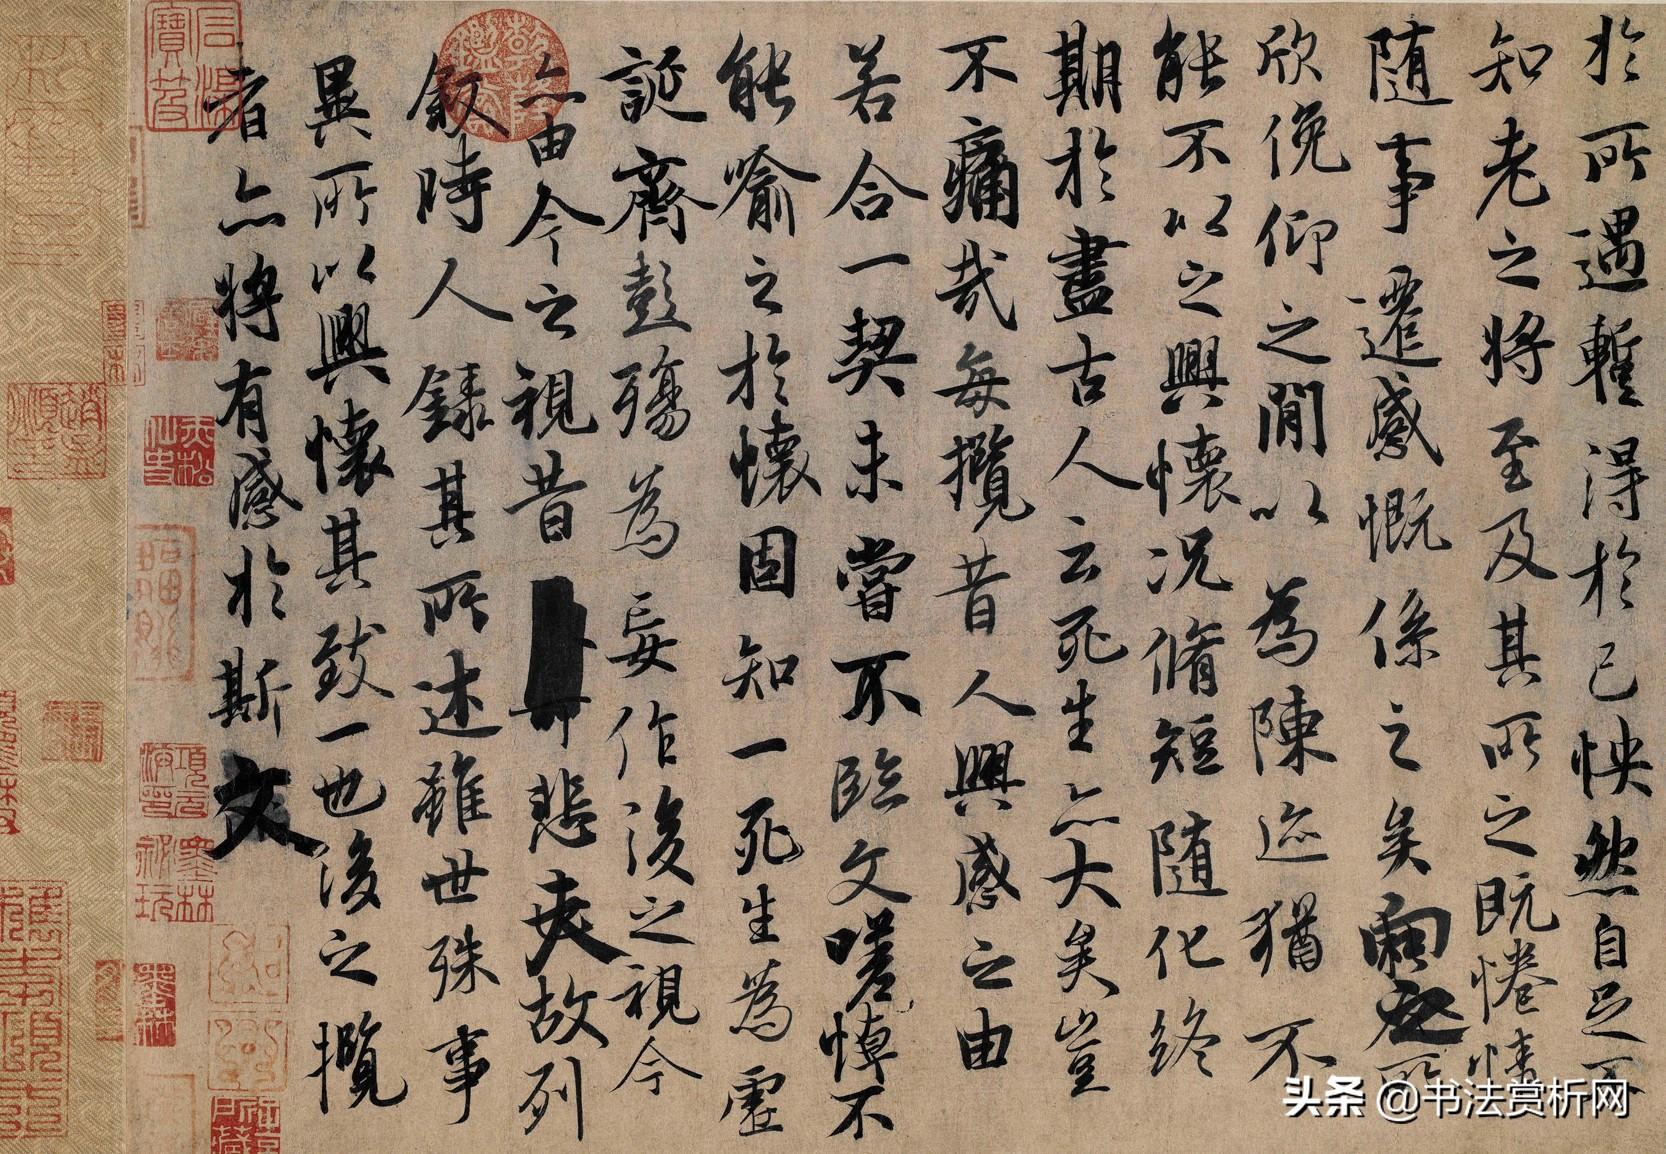 於所遇暫得於己怏然自足不
知老之將至及其所之既惓情
随事遷感慨係之矣向之所
欣俛仰之閒以為陳迹猶不
能不以之興懷况脩短随化終
期於盡古人云死生亦大矣豈
不痛哉每攬昔人興感之由
若合一契未嘗不臨文嗟悼不
能喻之於懷固知一死生為虛
誕齊彭殤為妄作後之視今
亦由今之視昔悲夫故列
敘時人錄其所述雖世殊事
異所以興懷其致一也後之攬
者亦將有感於斯文
赤松仙史
項元汴印
墨林祕玩
头条 @书法赏析网